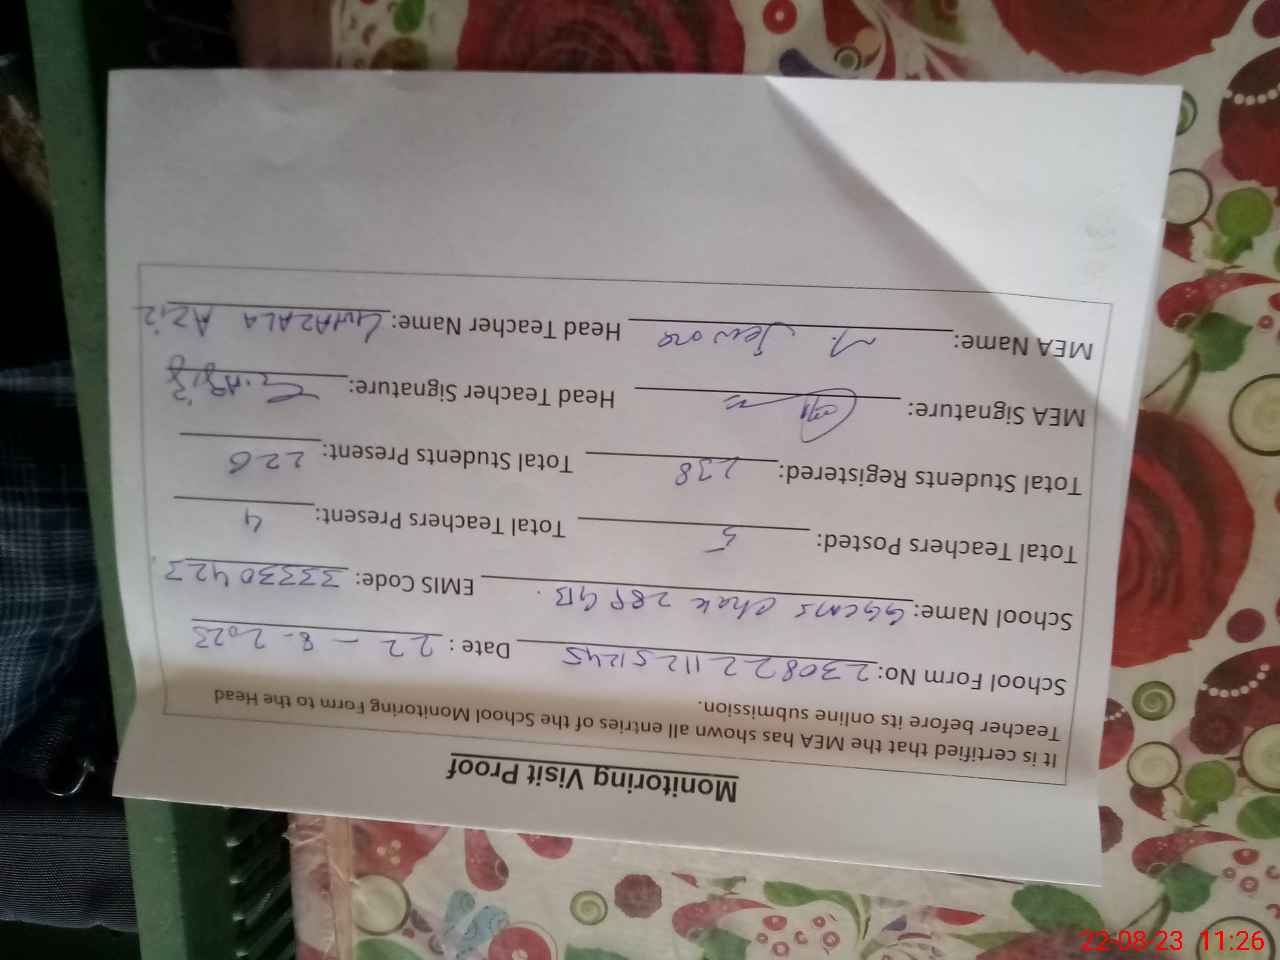 Monitoring Visit Proof
It is certified that the MEA has shown all entries of the School Monitoring Form to the Head
Teacher before its online submission.
School Form No: 23082211251245 Date : 22 - 8 - 2023
School Name: GGCMS Chak 289 GB. EMIS Code: 33330423
Total Teachers Posted: 5 Total Teachers Present: 4
Total Students Registered: 238 Total Students Present: 226
MEA Signature: Head Teacher Signature: G. Aziz
MEA Name: Head Teacher Name: GHAZALA Aziz
22-08-23 11:26